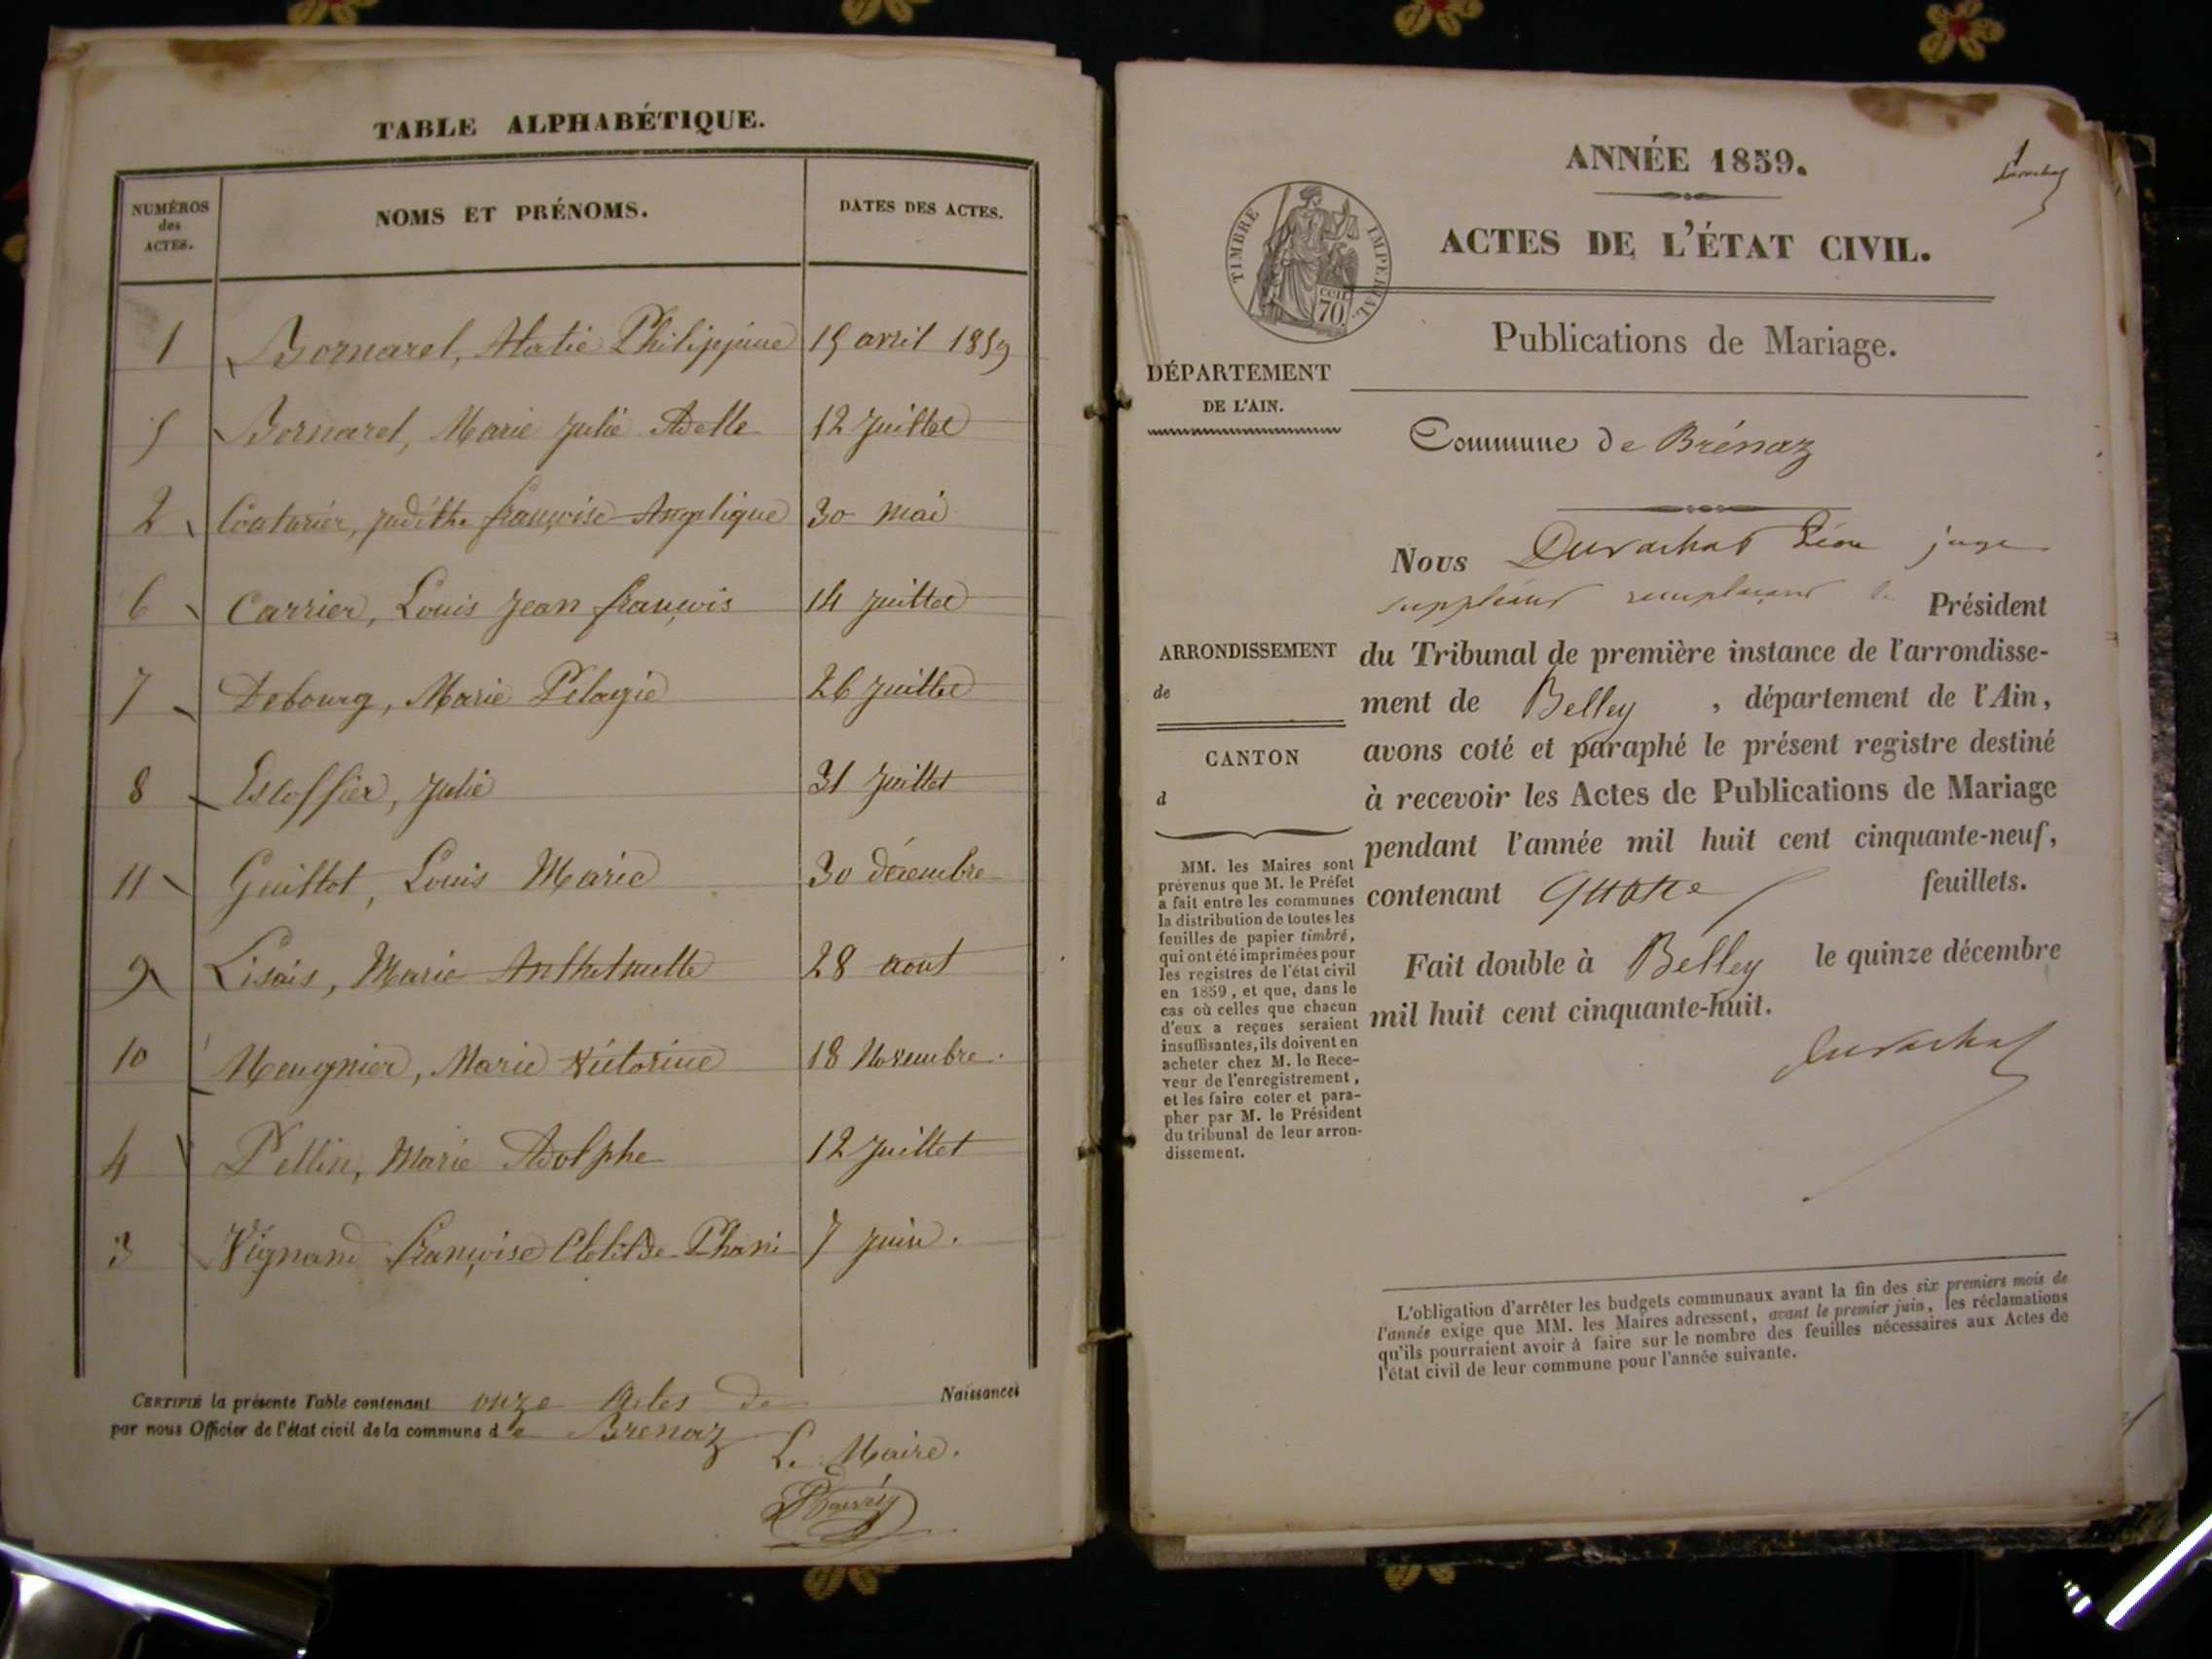 TABLE ALPHABÉTIQUE.
NUMÉROS
des
ACTES.
NOMS ET PRÉNOMS.
DATES DES ACTES.
1 Bornarel, Philippine 15 avril 1859
5 Bornarel, Marie Julie Adelle 12 Juillet
2 Couturier, Judithe françoise Angelique 30 mai
6 Carrier, Louis Jean françois 14 Juillet
7 Debourg, Marie Pélagie 26 Juillet
8 Escoffier, Julie 31 Juillet
11 Guillot, Louis Marie 30 décembre
9 Lisais, Marie Anthelmette 28 aout
10 Meugnier, Marie Victorine 18 Novembre.
4 Pellin, Marie Adolphe 12 Juillet
3 Vignand françoise Clotilde 7 Juin.
CERTIFIÉ la présente Table contenant onze Actes de Naissances
par nous Officier de l'état civil de la commune de Brenaz
Le Maire.
ANNÉE 1859.
1
ACTES DE L'ÉTAT CIVIL.
TIMBRE IMPÉRIAL.
CENT.
70.
Publications de Mariage.
DÉPARTEMENT
DE L'AIN.
Commune de Brénaz
Nous Durachat Léon juge
suppléant remplaçant le Président
ARRONDISSEMENT
de
CANTON
d
du Tribunal de première instance de l'arrondisse-
ment de Belley , département de l'Ain,
avons coté et paraphé le présent registre destiné
à recevoir les Actes de Publications de Mariage
pendant l'année mil huit cent cinquante-neuf,
contenant quatre feuillets.
Fait double à Belley le quinze décembre
mil huit cent cinquante-huit.
Durachat
MM. les Maires sont
prévenus que M. le Préfet
a fait entre les communes
la distribution de toutes les
feuilles de papier timbré,
qui ont été imprimées pour
les registres de l'état civil
en 1859, et que, dans le
cas où celles que chacun
d'eux a reçues seraient
insuffisantes, ils doivent en
acheter chez M. le Rece-
veur de l'enregistrement,
et les faire coter et para-
pher par M. le Président
du tribunal de leur arron-
dissement.
L'obligation d'arrêter les budgets communaux avant la fin des six premiers mois de
l'année exige que MM. les Maires adressent, avant le premier juin, les réclamations
qu'ils pourraient avoir à faire sur le nombre des feuilles nécessaires aux Actes de
l'état civil de leur commune pour l'année suivante.